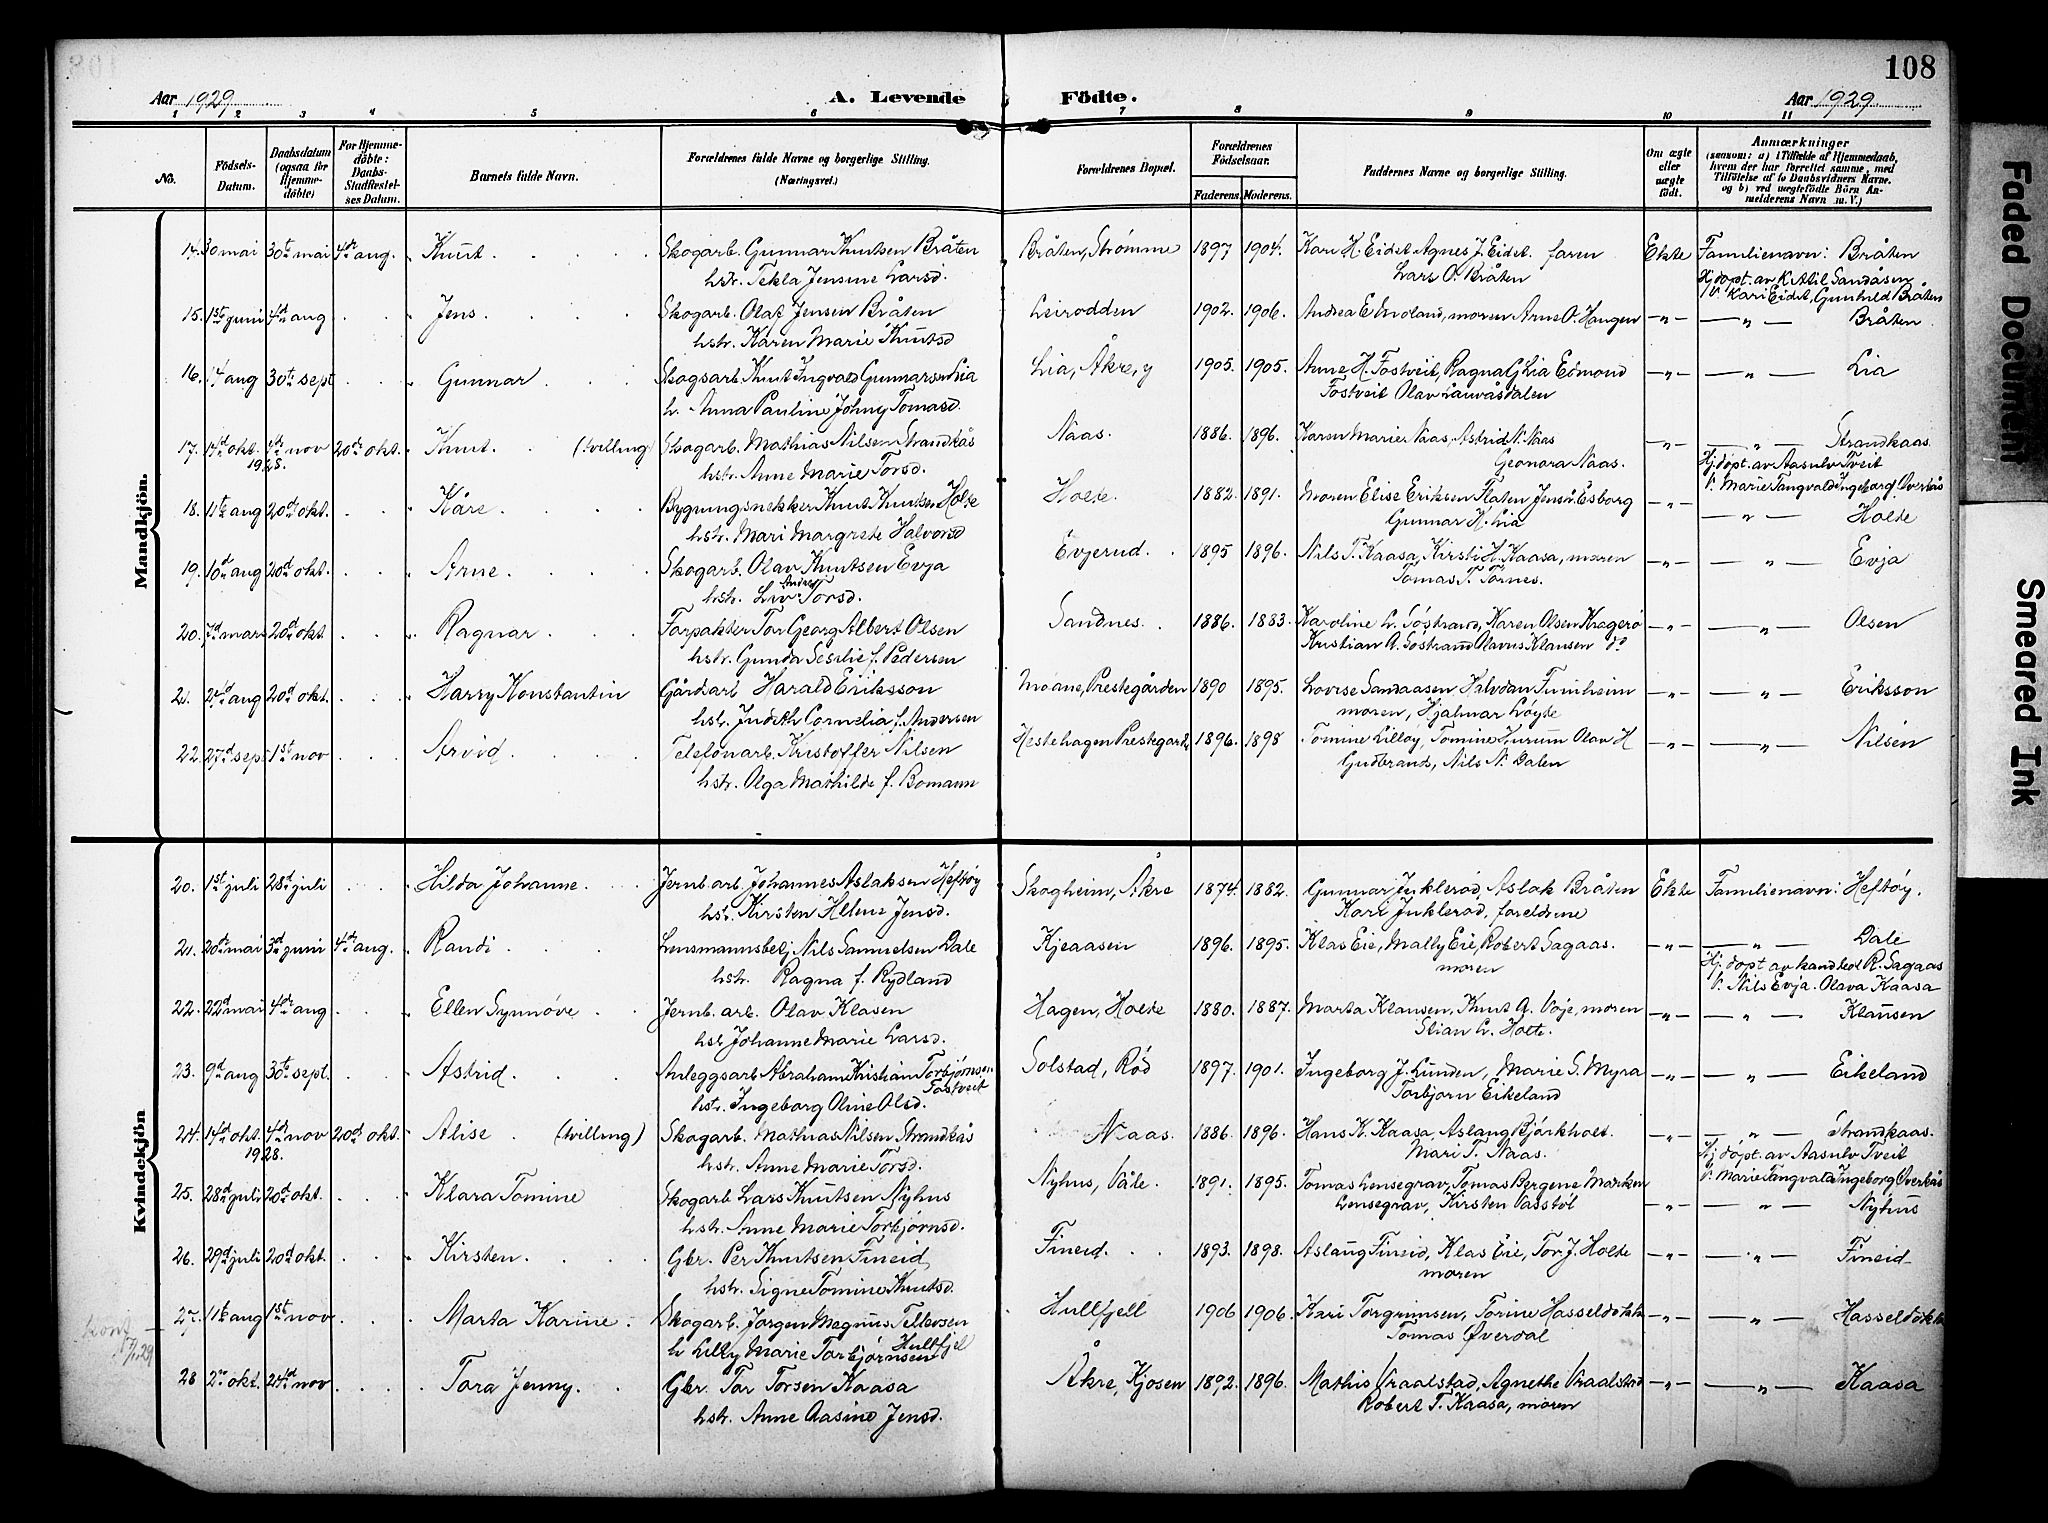 108
Aar 1929 A. Levende Födte. Aar 1929
1 2 3 4 5 6 7 8 9 10 11
No.
Födsels-Datum.
Daabsdatum (ogsaa for Hjemmedöbte)
For Hjemmedöbte: Daabs-Stadfestelses Datum.
Barnets fulde Navn.
Forældrenes fulde Navne og borgerlige Stilling.
(Næringsvei.)
Forældrenes Bopæl.
Forældrenes Födselsaar.
Faderens. Moderens.
Faddernes Navne og borgerlige Stilling.
Om ægte eller uægte födt.
Anmærkninger
(saasom: a) i Tilfælde af Hjemmedaab,
hvem der har forrettet samme, med
Tilföielse af to Daabsvidners Navne.
og b) ved uægtefödte Börn Anmelderens Navn m. V.)
Mandkjön.
14. 30 mai 30te mai 4de aug. Knut Skogarb. Gunnar Knutsen Bråten Bråten, Strømme 1897 1904. Kari H. Eidet, Agnes J. Eidet. faren Ekte Familienavn: Bråten
hstr. Tekla Jensine Larsd. Lars O. Bråten Hj.döpt. av K. Atil Sandåsen
V. Kari Eidet, Gunhild Bråten
15. 1ste juni 4de aug Jens Skogarb. Olaf Jensen Bråten Leirodden 1902. 1906. Andrea E. Moland, moren Arne O. Haugen -„- -„- Bråten
hstr. Karen Marie Knutsd
16. 14 aug 30te sept Gunnar Skogsarb. Knut Ingvald Gunnarsen Lia Lia, Åkre, y 1905. 1905. Anne H. Tostveit, Ragna G Lia Edmond -„- -„- Lia
h. Anna Pauline Johny Tomasd. Tostveit Olav Lauvåsdalen
17. 14d okt. 1928. 4de nov 20de okt. Knut (tvilling) Skogarb. Mathias Nilsen Strandkås Naas. 1886. 1896. Karen Marie Naas, Astrid N. Naas -„- -„- Strandkaas.
hstr. Anne Marie Torsd. Geonora Naas. Hj.döpt. av Aasulv Tveit
V. Marie Tangvald Ingeborg Överkås
18. 11te aug 20de okt. Kåre Bygningsnekker Knut Knutsen Holte Holte. 1882. 1891. Moren Elise Eriksen Flaten Jens Esborg -„- -„- Holte
hstr. Mari Margrete Halvorsd Gunnar H. Lia
19. 10d aug 20de okt. Arne. Skogarb. Olav Knutsen Evja Evjerud. 1895 1896. Nils T. Kaasa, Kirsti H. Kaasa, moren -„- -„- Evja
hstr. Liv Andrea Torsd. Tomas T. Törnes.
20. 7d mars 20de okt Ragnar Forpakter Tor Georg Albert Olsen Sandnes. 1886. 1883. Karoline L. Söstrand, Karen Olsen Kragerö -„- -„- Olsen
hstr. Gunda Sesilie f. Pedersen Kristian A. Söstrand Olavus Klausen do
21. 24d aug 20d okt. Harry Konstantin Gårdarb Harald Eriksson Moane, Prestegården 1890 1895. Lovise Sandaasen, Halvdan Furuheim -„- -„- Eriksson
hstr. Judith Cornelia f. Andersen moren, Hjalmar Löyte
22. 27d sep 1st nov Arvid Telefonarb. Kristoffer Nilsen Hestehagen Prestegård 1896. 1898 Tomine Lilloy, Tomine Hurum Olav H -„- -„- Nilsen
hstr. Olga Mathilde f. Bomann Gudbrand, Nils N. Dalen
Kvindekjön
20. 1st juli 28de juli Hilda Johanne Jernb arb. Johannes Aslaksen Heftöy Skogheim, Åkre 1874. 1882. Gunnar Juklerød, Aslak Bråten Ekte Familienavn: Heftöy.
hstr. Kirsten Helene Jensd. Kari Juklerød, foreldrene
21. 20de mai 3d juni 4de aug. Randi Lensmannsbetj Nils Samuelsen Dale Kjeaasen 1896. 1895. Klas Eie, Mally Eie, Robert Sagaas. -„- -„- Dale
hstr. Ragna f. Rydland moren Hj.döpt av kand teol R. Sagaas
V. Nils Evja. Olava Kaasa
22. 22d mai 4de aug Ellen Synnöve Jernb. arb. Olav Klasen Hagen, Holte 1880. 1887. Marta Klausen, Knut A. Voje, moren -„- -„- Klausen
hstr Johanne Marie Larsd. Stian L. Holte.
23. 9d aug 30te sept. Astrid. Anleggsarb Abraham Kristian Torbjörnsen Tostveit Solstad, Rød 1897. 1901. Ingeborg J. Lunden, Marie S. Myra -„- -„- Eikeland
hstr. Ingeborg Oline Olsd. Torbjörn Eikeland
24. 14d okt. 1928. 4de nov 20d okt. Alise (tvilling) Skogarb. Mathias Nilsen Strandkås Naas. 1886. 1896. Hans K. Kaasa, Aslaug Björkholt. -„- -„- Strandkaas.
hstr. Anne Marie Torsd. Mari T. Naas. Hj.döpt. av Aasulv Tveit
V. Marie Tangvald, Ingeborg Överkås
25. 28de juli 20d okt. Klara Tomine Skogarb Lars Knutsen Nyhus Nyhus, Våle. 1891. 1895. Tomas Lensegrav, Tomas Bergene Marken -„- -„- Nyhus
hstr. Anne Marie Torbjørnsd. Lensegrav, Kirsten Vasstöl
26. 29d juli 20d okt. Kirsten. Gbr. Per Knutsen Fineid Fineid. 1893. 1898. Aslaug Fineid, Klas Eie, Tor J. Holte -„- -„- Fineid-
hstr. Signe Tomine Knutsd. moren
27. 11te aug 1st nov Marta Karine. Skogarb. Jörgen Magnus Tellevsen Hullfjell 1906 1906. Kari Torgrimsen, Torine Hasseldokka -„- -„- Hasseldokka
h Lilly Marie Torbjörnsen Hullfjel Tomas Øverdal
28 2n okt. 24de nov Tora Jenny. Gbr. Tor Torsen Kaasa Åkre, Kjosen 1892. 1896. Mathis Vraalstad, Agnethe Vraalstad -„- -„- Kaasa
hstr. Anne Aasine Jensd. Robert T. Kaasa, moren
Faded Document
Smeared Ink